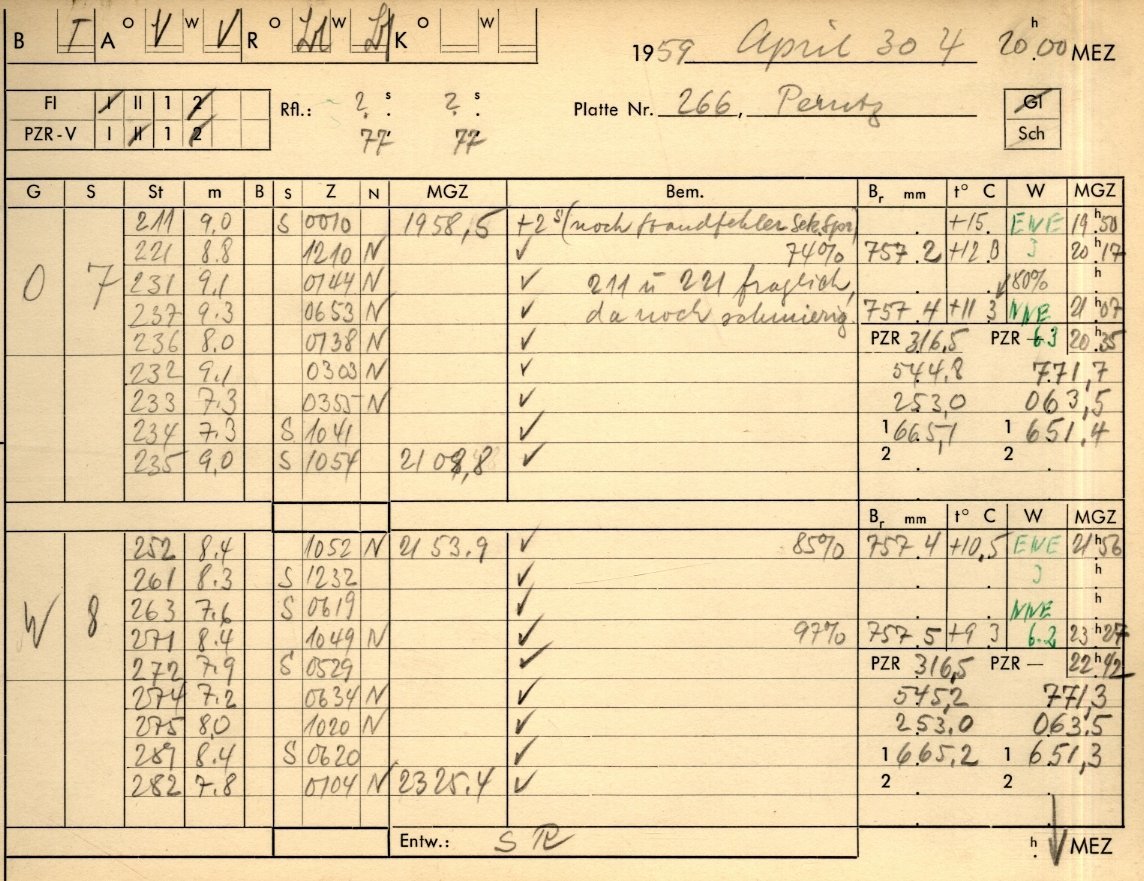 B T A o V w V R o w K o w
1959 April 30 4 20 h 00 MEZ
FI I II 1 2
Rfl.: ? s ? s
Platte Nr. 266, Perutz
Gl
PZR-V I II 1 2
77 77
Sch
G S St m B S Z N MGZ Bem. Br mm t° C W MGZ
211 9,0 S 0010 1958,5 +2 s (noch Standfehler Sek.Spur) +15. ENE 19 h 50
221 8.8 1210 N ✓ 74% 757.2 +12.8 3 20 h 17
O 7 231 9,1 0744 N ✓ 211 u 221 fraglich, 80% h
237 9.3 0653 N ✓ da noch schmierig 757.4 +11 3 NNE 21 h 07
236 8.0 0738 N ✓ PZR 316,5 PZR 6.3 20 h 35
232 9,1 0303 N ✓ 544,8 771,7
233 7.3 0355 N ✓ 253,0 063,5
234 7.3 S 1041 ✓ 1 665,1 1 651.4
235 9,0 S 1054 2108,8 ✓ 2 2
Br mm t° C W MGZ
252 8.4 1052 N 2153.9 ✓ 85% 757.4 +10,5 ENE 21 h 56
261 8.3 S 1232 ✓ 3 h
W 8 263 7.6 S 0619 ✓ NNE h
271 8.4 1049 N ✓ 97% 757.5 +9 3 6.2 23 h 27
272 7.9 S 0529 ✓ PZR 316,5 PZR — 22 h 42
274 7.2 0634 N ✓ 545,2 771,3
275 8,0 1020 N ✓ 253.0 063.5
281 8.4 S 0620 ✓ 1 665,2 1 651,3
282 7.8 0104 N 2325.4 ✓ 2 2
Entw.: SR h MEZ